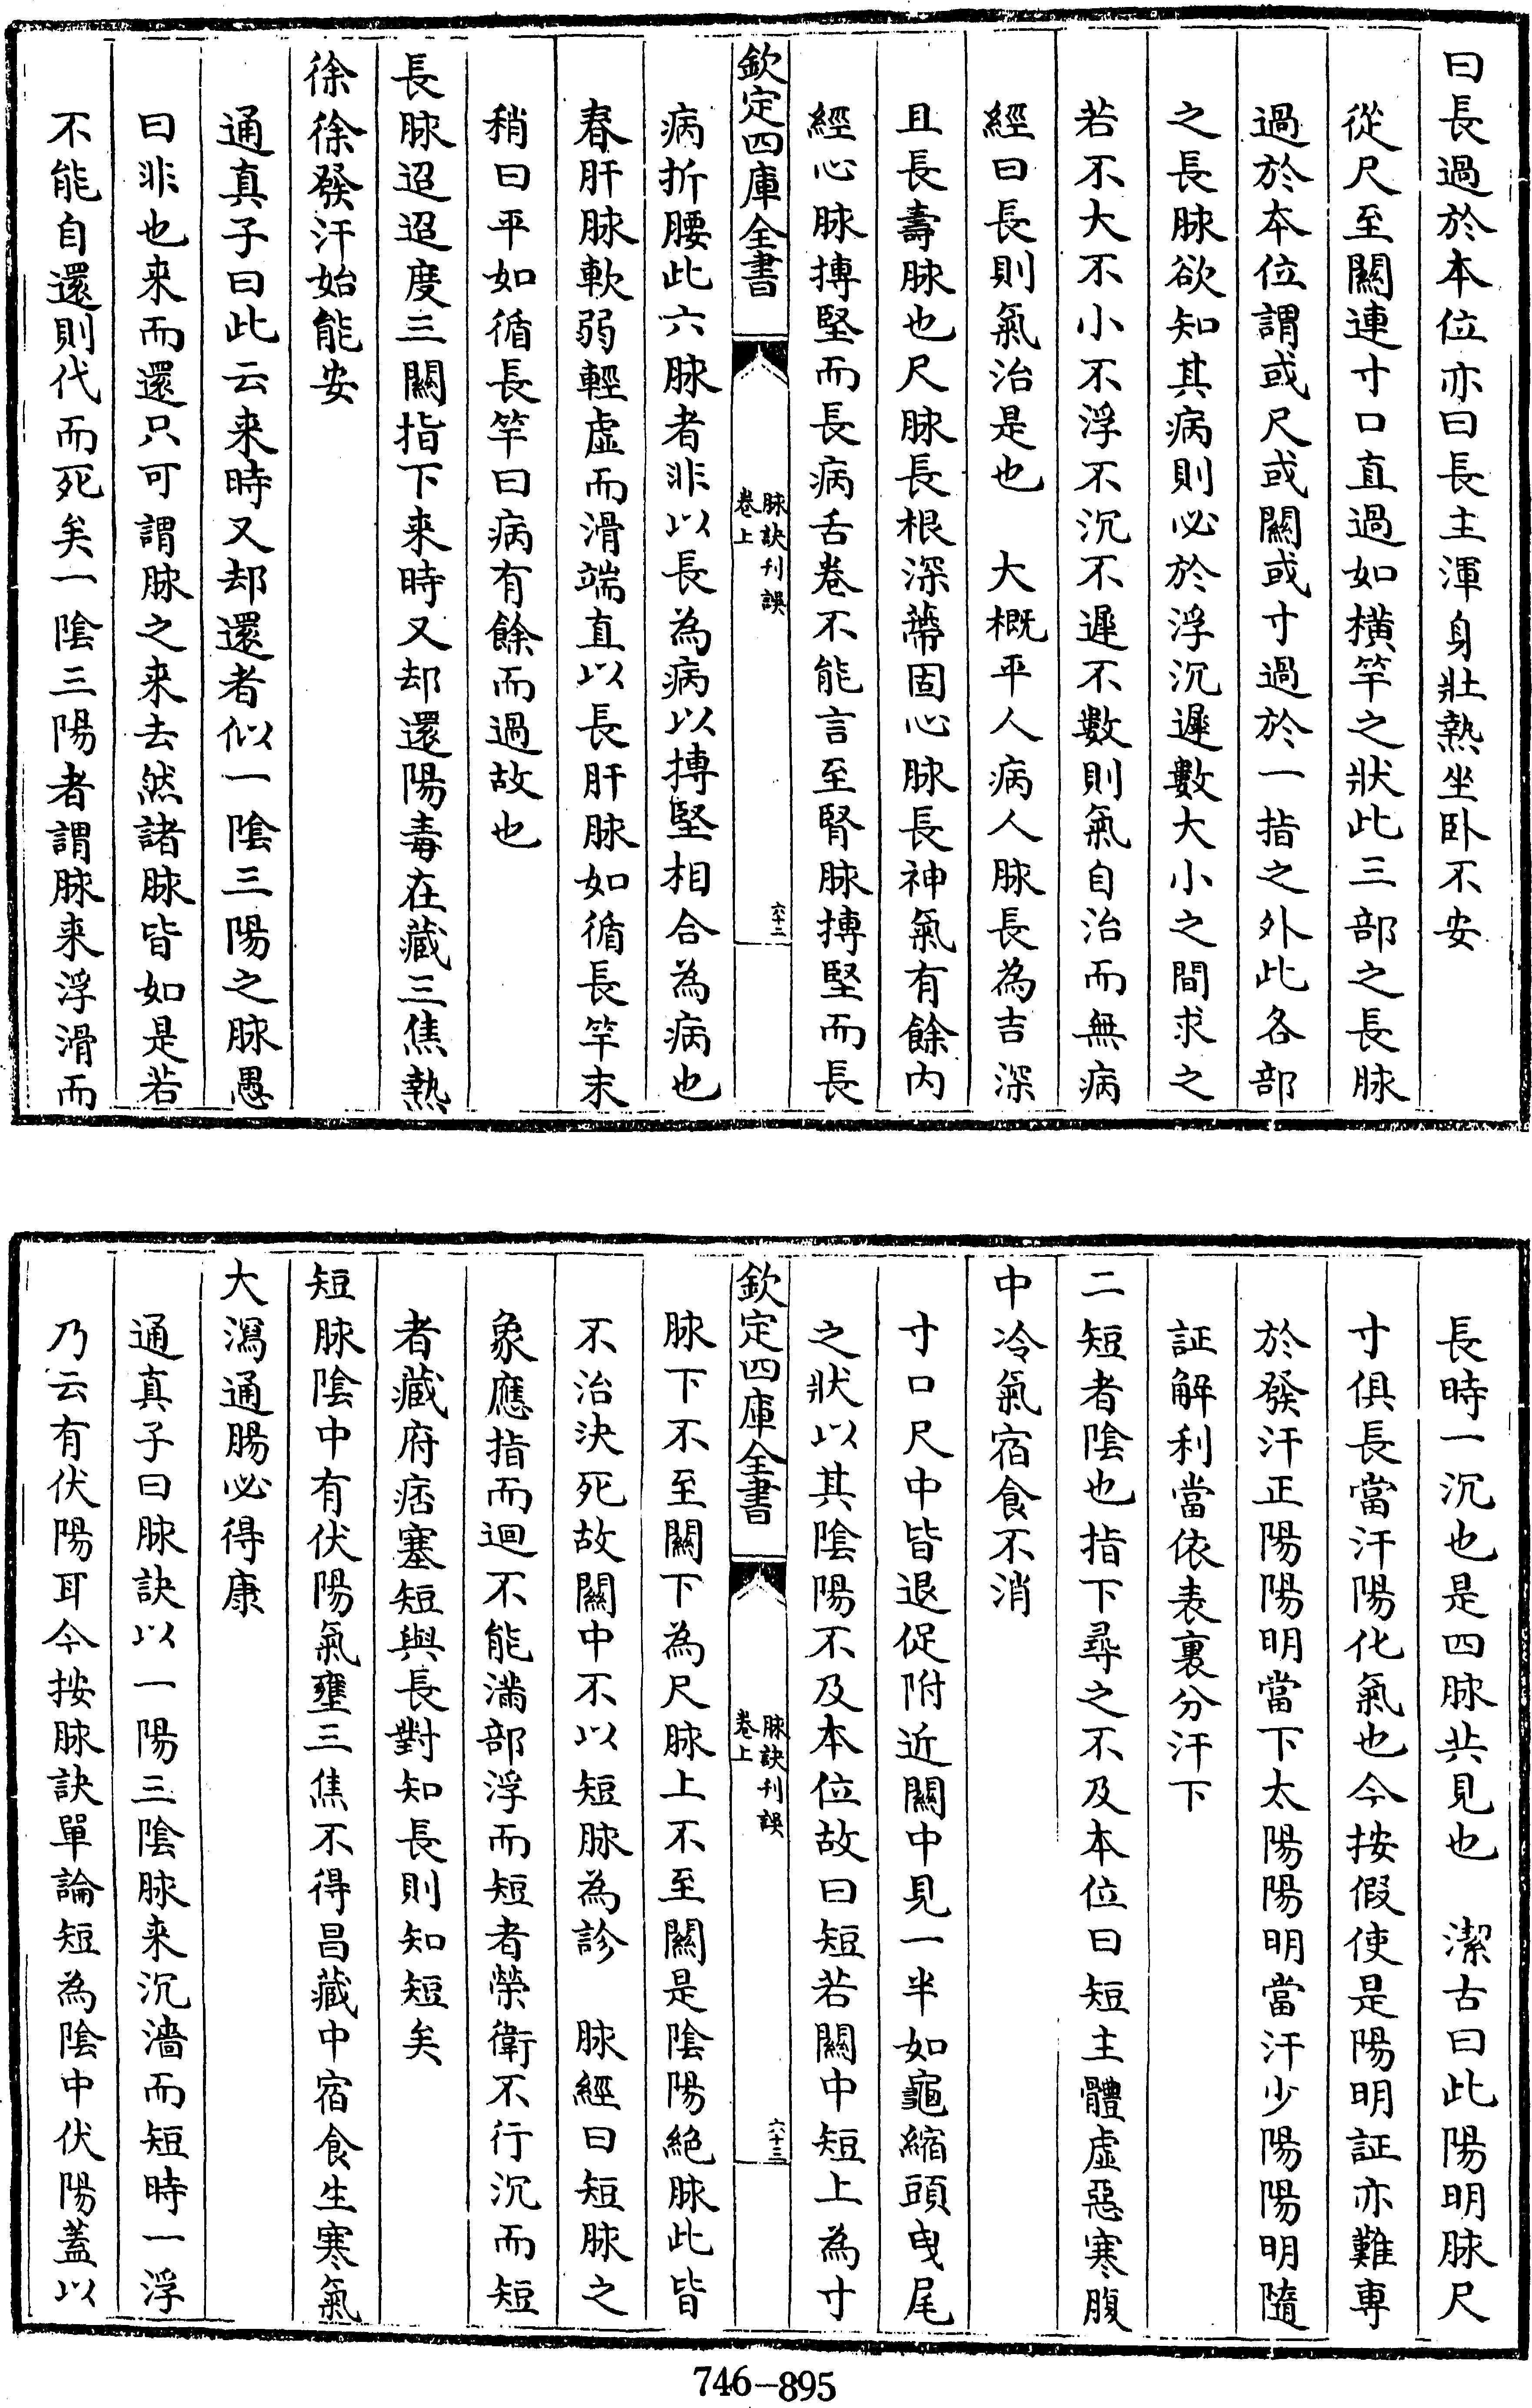 曰長過於本位亦曰長主渾身壯熱坐卧不安
從尺至關連寸口直過如橫竿之狀此三部之長脉
過於本位謂或尺或關或寸過於一指之外此各部
之長脉欲知其病則必於浮沉遲數大小之間求之
若不大不小不浮不沉不遲不數則氣自治而無病
經曰長則氣治是也　大概平人病人脉長為吉深
且長壽脉也尺脉長根深蔕固心脉長神氣有餘内
經心脉搏堅而長病舌卷不能言至腎脉搏堅而長
欽定四庫全書
脉訣刊誤
卷上
六十二
病折腰此六脉者非以長為病以搏堅相合為病也
春肝脉軟弱輕虛而滑端直以長肝脉如循長竿末
稍曰平如循長竿曰病有餘而過故也
長脉迢迢度三關指下来時又却還陽毒在藏三焦熱
徐徐發汗始能安
通真子曰此云来時又却還者似一陰三陽之脉愚
曰非也来而還只可謂脉之来去然諸脉皆如是若
不能自還則代而死矣一陰三陽者謂脉来浮滑而
長時一沉也是四脉共見也　潔古曰此陽明脉尺
寸俱長當汗陽化氣也今按假使是陽明証亦難專
於發汗正陽陽明當下太陽陽明當汗少陽陽明隨
証解利當依表裏分汗下
二短者陰也指下尋之不及本位曰短主體虛惡寒腹
中冷氣宿食不消
寸口尺中皆退促附近關中見一半如龜縮頭曳尾
之狀以其陰陽不及本位故曰短若關中短上為寸
欽定四庫全書
脉訣刊誤
卷上
六十三
脉下不至關下為尺脉上不至關是陰陽絶脉此皆
不治決死故關中不以短脉為診　脉經曰短脉之
象應指而迴不能滿部浮而短者榮衛不行沉而短
者藏府痞塞短與長對知長則知短矣
短脉陰中有伏陽氣壅三焦不得昌藏中宿食生寒氣
大瀉通腸必得康
通真子曰脉訣以一陽三陰脉来沉濇而短時一浮
乃云有伏陽耳今按脉訣單論短為陰中伏陽蓋以
746-895